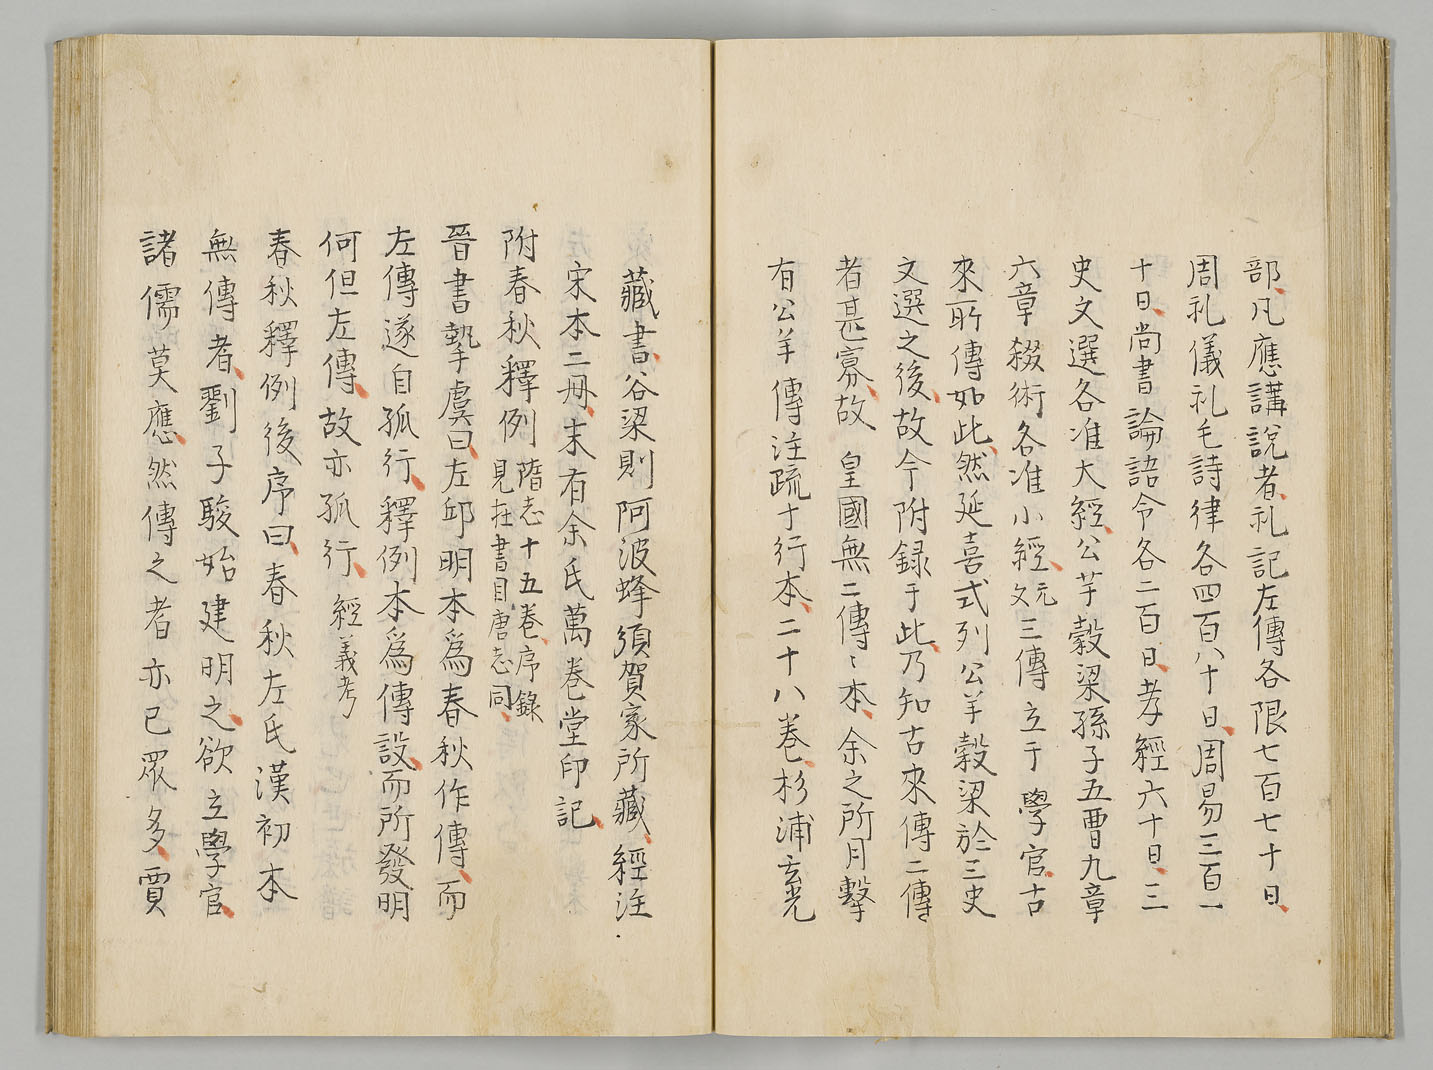 部凡應講説者礼記左傳各限七百七十日
周礼儀礼毛詩律各四百八十日周易三百一
十日尚書論語令各二百日孝經六十日三
史文選各准大經公羊穀梁孫子五曹九章
六章綴術各准小經元文三傳立于學官古
來所傳如此然延喜式列公羊穀梁於三史
文選之後故今附録于此乃知古來傳二傳
者甚寡故 皇國無二傳〻本余之所月擊
有公羊傳注疏十行本二十八卷杉浦玄光
藏書谷梁則阿波蜂須賀家所藏經注
宋本二冊末有余氏萬卷堂印記
附春秋釋例 隋志十五卷序錄
見在書目唐志同
晉書摯虞曰左邱明本爲春秋作傳而
左傳遂自孤行釋例本爲傳設而所發明
何但左傳故亦孤行 經義考
春秋釋例後序曰春秋左氏漢初本
無傳者劉子駿始建明之欲立學官
諸儒莫應然傳之者亦已眾多賈